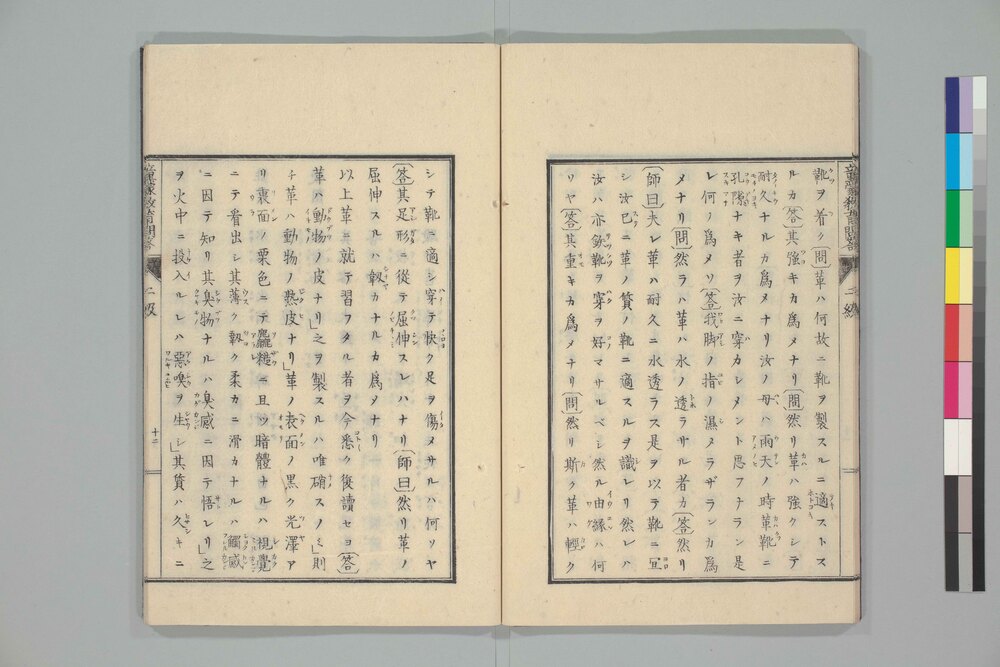 靴ヲ着ク〔問〕革ハ何故ニ靴ヲ製スルニ適ストス
ルカ〔答〕其強キカ為メナリ〔問〕然リ革ハ強クシテ
耐久ナルカ為メナリ汝ノ母ハ雨天ノ時革靴ニ
孔隙ナキ者ヲ汝ニ穿カシメント思フナラン是
レ何ノ為メソ〔答〕我脚ノ指ノ濕メラザランカ為
メナリ〔問〕然ラハ革ハ水ノ透ラザル者カ〔答〕然リ
〔師曰〕夫レ革ハ耐久ニ水透ラス是ヲ以テ靴ニ宜
シ汝已ニ革ノ質ノ靴ニ適スルヲ識レリ然レハ
汝ハ亦鉄靴ヲ穿ヲ好マサルベシ然ル由縁ハ何
リヤ〔答〕其重キカ為メナリ〔問〕然リ斯ク革ハ輕ク
二級
シテ靴ニ適シ穿テ快ク足ヲ傷メサルハ何ソヤ
〔答〕其足形ニ從テ屈伸スレハナリ〔師曰〕然リ革ノ
屈伸スルハ靱カナルカ為メナリ
以上革ニ就テ習フタル者ヲ今悉ク復讀セヨ〔答〕
革ハ動物ノ皮ナリ」之ヲ製スルハ唯硝スノミ」則
チ革ハ動物ノ熟皮ナリ」革ノ表面ノ黒ク光澤ア
リ裏面ノ栗色ニテ麤糙ニ且ツ暗體ナルハ視覺
ニテ看出シ其薄ク靱ク柔カニ滑カナルハ觸感
ニ因テ知リ其臭物ナルハ臭感ニ因テ悟レリ」之
ヲ火中ニ投入ルレハ惡嗅ヲ生シ」其質ハ久キニ
二級
十二